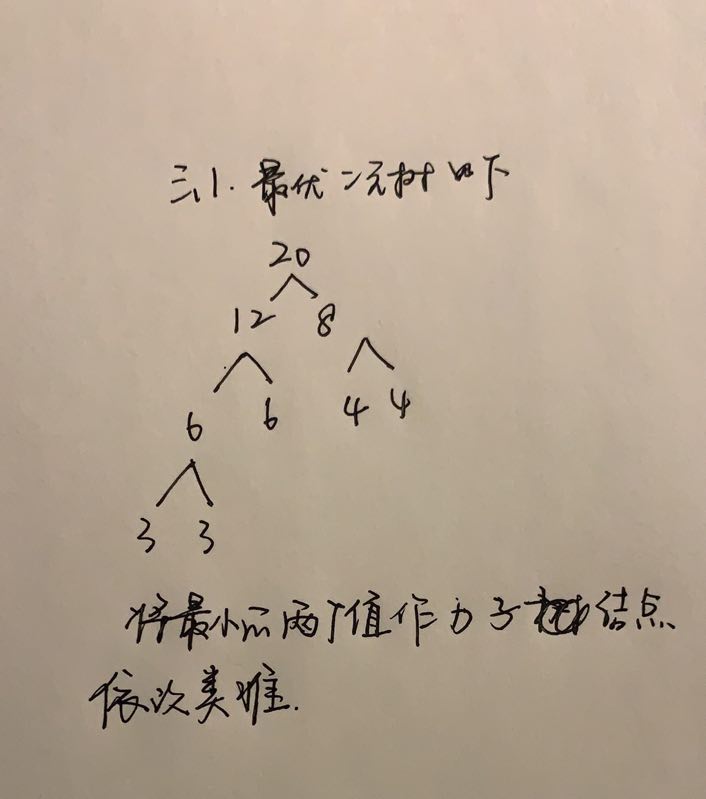 三、1. 最优二元树如下
20
12 8
6 6 4 4
3 3
将最小的两个值作为子结点
依次类推.